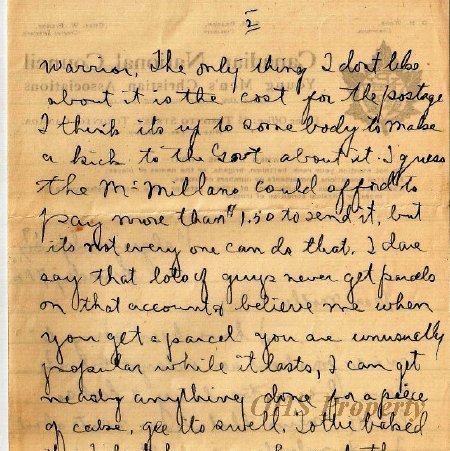 2
warrior, The only thing I dont like
about it is the cost for the postage
I think its up to some body to make
a kick to the Govt about it. I guess
the McMillans could afford to
pay more than $1.50 to send it, but
its not every one can do that. I dare
say that lots of guys never get parcels
on that account & believe me when
you get a parcel you are unusually
popular while it lasts, I can get
nearly anything done for a piece
of cake, gee its swell. Lottie baked
Canadian National Council
Young Men's Christian Associations
GHS Property